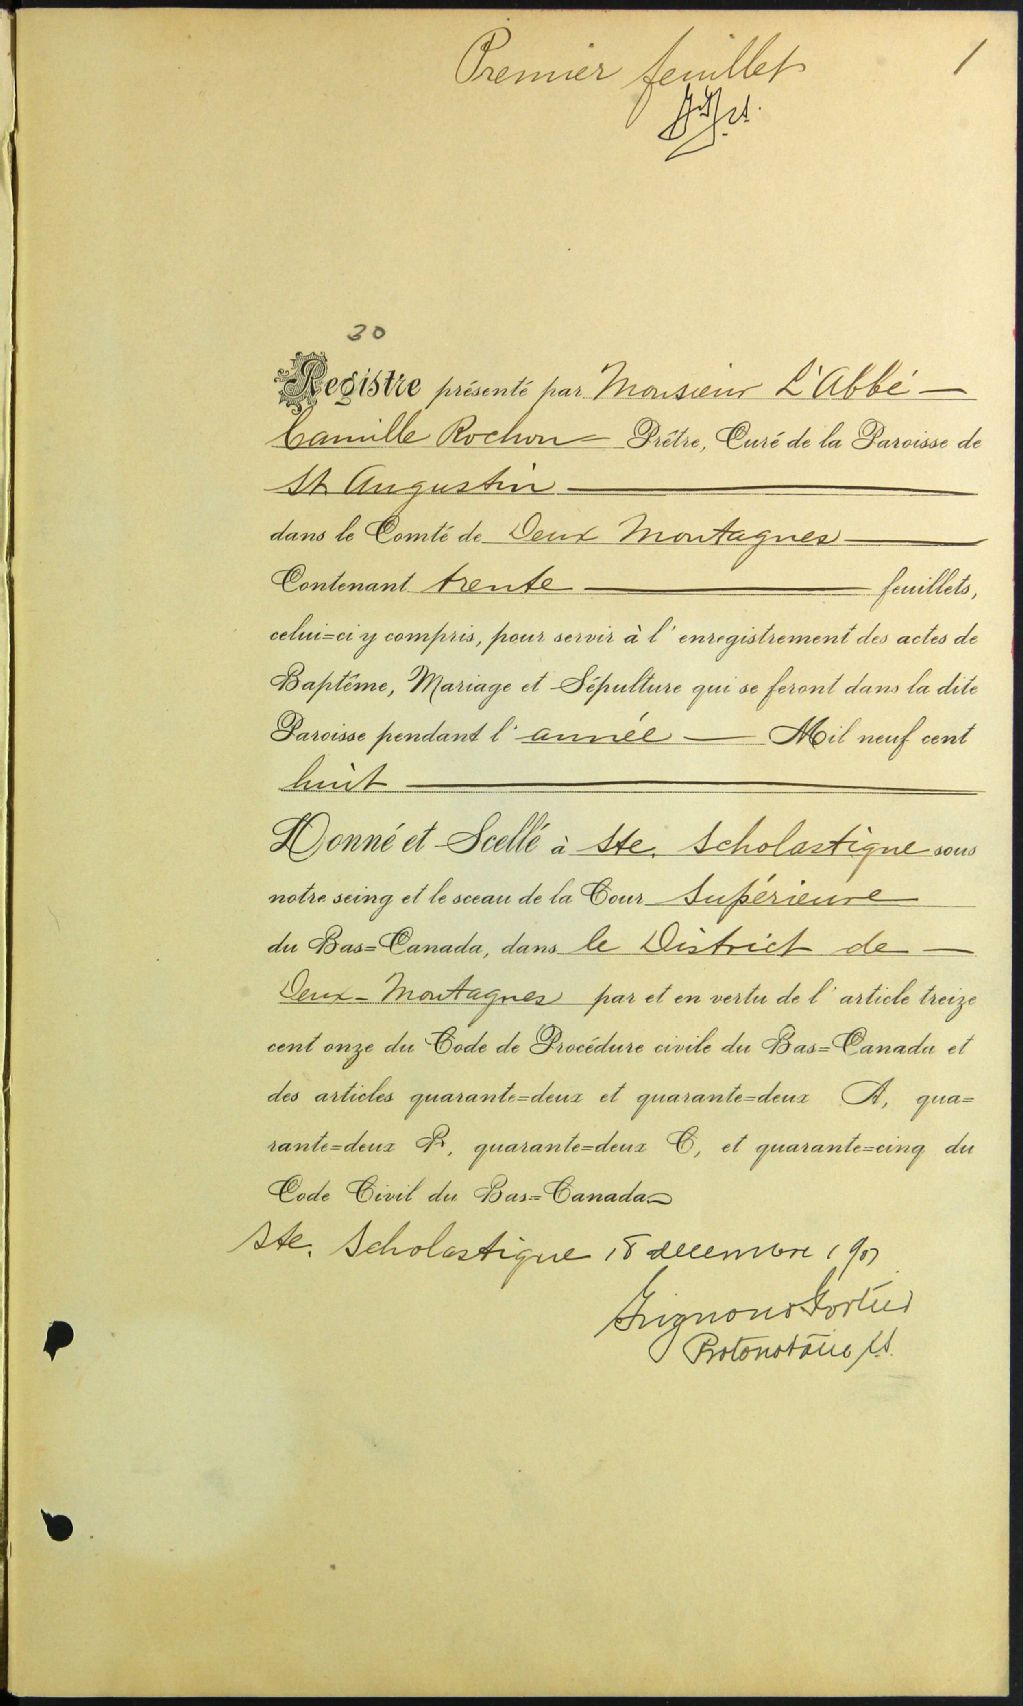 Premier feuillet
1
30
Registre présenté par Monsieur L'Abbé —
Camille Rochon — Prêtre, Curé de la Paroisse de
St Augustin —
dans le Comté de Deux Montagnes —
Contenant trente — feuillets,
celui=ci y compris, pour servir à l'enregistrement des actes de
Baptême, Mariage et Sépulture qui se feront dans la dite
Paroisse pendant l'année — Mil neuf cent
huit —
Donné et Scellé à Ste. Scholastique sous
notre seing et le sceau de la Cour Supérieure
du Bas=Canada, dans le District de —
Deux-Montagnes par et en vertu de l'article treize
cent onze du Code de Procédure civile du Bas=Canada et
des articles quarante=deux et quarante=deux A, qua=
rante=deux B, quarante=deux C, et quarante=cinq du
Code Civil du Bas=Canada
Ste. Scholastique 18 decembre 1907
Grignon & Fortier
Protonotaire C.S.